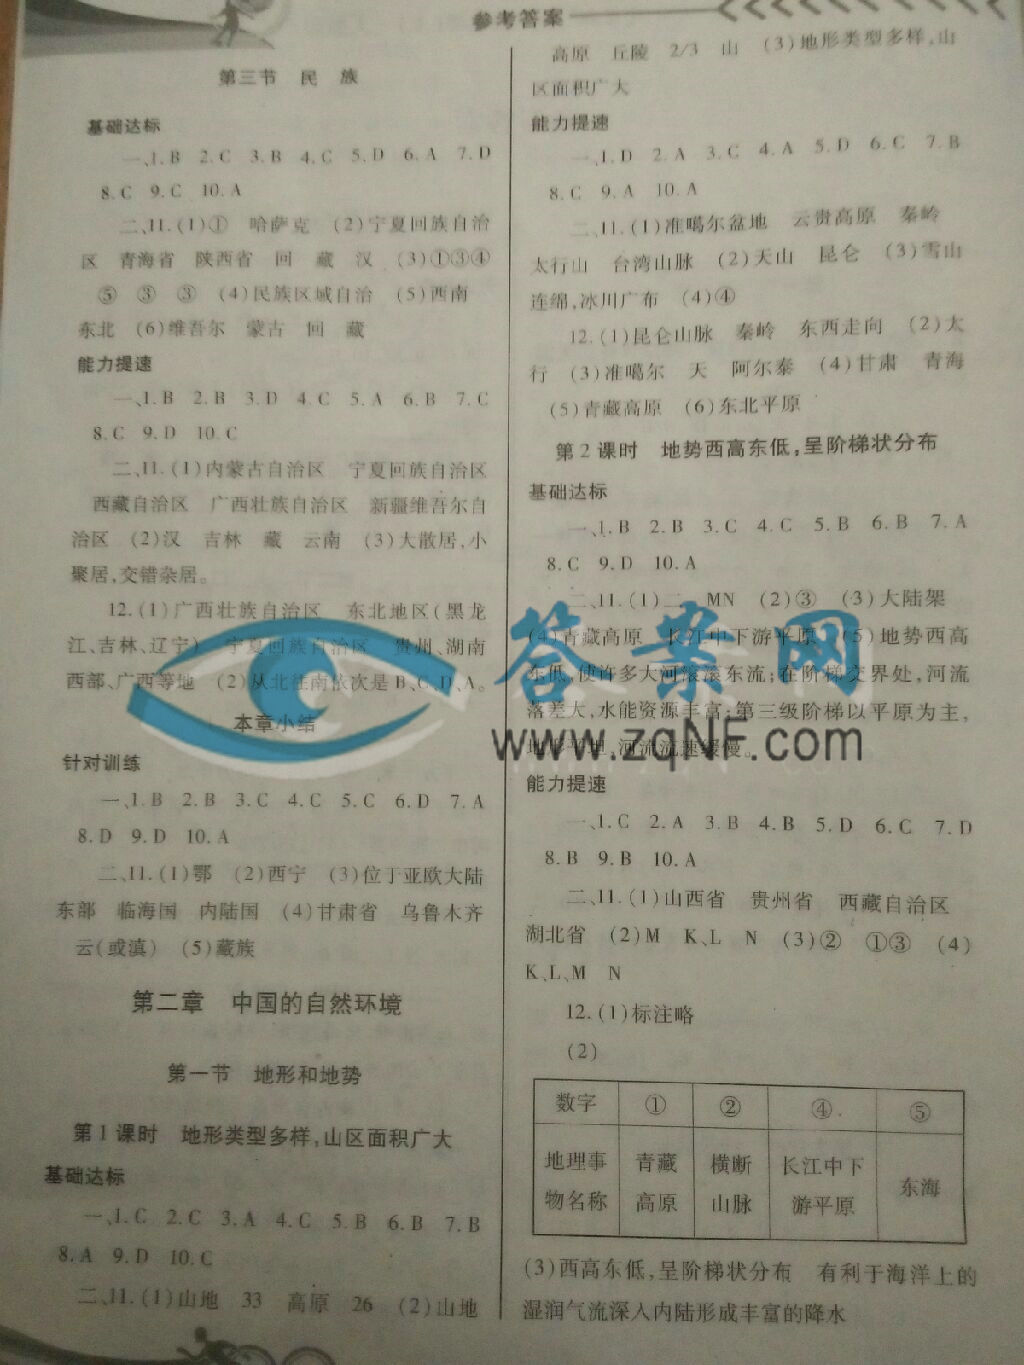 参考答案
第三节 民 族
基础达标
一、1.B 2.C 3.B 4.C 5.D 6.A 7.D
8.C 9.C 10.A
二、11.(1)① 哈萨克 (2)宁夏回族自治
区 青海省 陕西省 回 藏 汉 (3)①③④
⑤ ③ ③ (4)民族区域自治 (5)西南
东北 (6)维吾尔 蒙古 回 藏
能力提速
一、1.B 2.B 3.D 4.C 5.A 6.B 7.C
8.C 9.D 10.C
二、11.(1)内蒙古自治区 宁夏回族自治区
西藏自治区 广西壮族自治区 新疆维吾尔自
治区 (2)汉 吉林 藏 云南 (3)大散居,小
聚居,交错杂居。
12.(1)广西壮族自治区 东北地区(黑龙
江、吉林、辽宁) 宁夏回族自治区 贵州、湖南
西部、广西等地 (2)从北往南依次是B、C、D、A。
本章小结
针对训练
一、1.B 2.B 3.C 4.C 5.C 6.D 7.A
8.D 9.D 10.A
二、11.(1)鄂 (2)西宁 (3)位于亚欧大陆
东部 临海国 内陆国 (4)甘肃省 乌鲁木齐
云(或滇) (5)藏族
第二章 中国的自然环境
第一节 地形和地势
第1课时 地形类型多样,山区面积广大
基础达标
一、1.C 2.C 3.A 4.C 5.B 6.B 7.B
8.A 9.D 10.C
二、11.(1)山地 33 高原 26 (2)山地
高原 丘陵 2/3 山 (3)地形类型多样,山
区面积广大
能力提速
一、1.D 2.A 3.C 4.A 5.D 6.C 7.B
8.C 9.A 10.A
二、11.(1)准噶尔盆地 云贵高原 秦岭
太行山 台湾山脉 (2)天山 昆仑 (3)雪山
连绵,冰川广布 (4)④
12.(1)昆仑山脉 秦岭 东西走向 (2)太
行 (3)准噶尔 天 阿尔泰 (4)甘肃 青海
(5)青藏高原 (6)东北平原
第2课时 地势西高东低,呈阶梯状分布
基础达标
一、1.B 2.B 3.C 4.C 5.B 6.B 7.A
8.C 9.D 10.A
二、11.(1)二 MN (2)③ (3)大陆架
(4)青藏高原 长江中下游平原 (5)地势西高
东低,使许多大河滚滚东流;在阶梯交界处,河流
落差大,水能资源丰富;第三级阶梯以平原为主,
地形平坦,河流流速缓慢。
答案网
www.zqNF.com
能力提速
一、1.C 2.A 3.B 4.B 5.D 6.C 7.D
8.B 9.B 10.A
二、11.(1)山西省 贵州省 西藏自治区
湖北省 (2)M K、L N (3)② ①③ (4)
K、L、M N
12.(1)标注略
(2)
数字 ① ② ④ ⑤
地理事 青藏 横断 长江中下 东海
物名称 高原 山脉 游平原
(3)西高东低,呈阶梯状分布 有利于海洋上的
湿润气流深入内陆形成丰富的降水